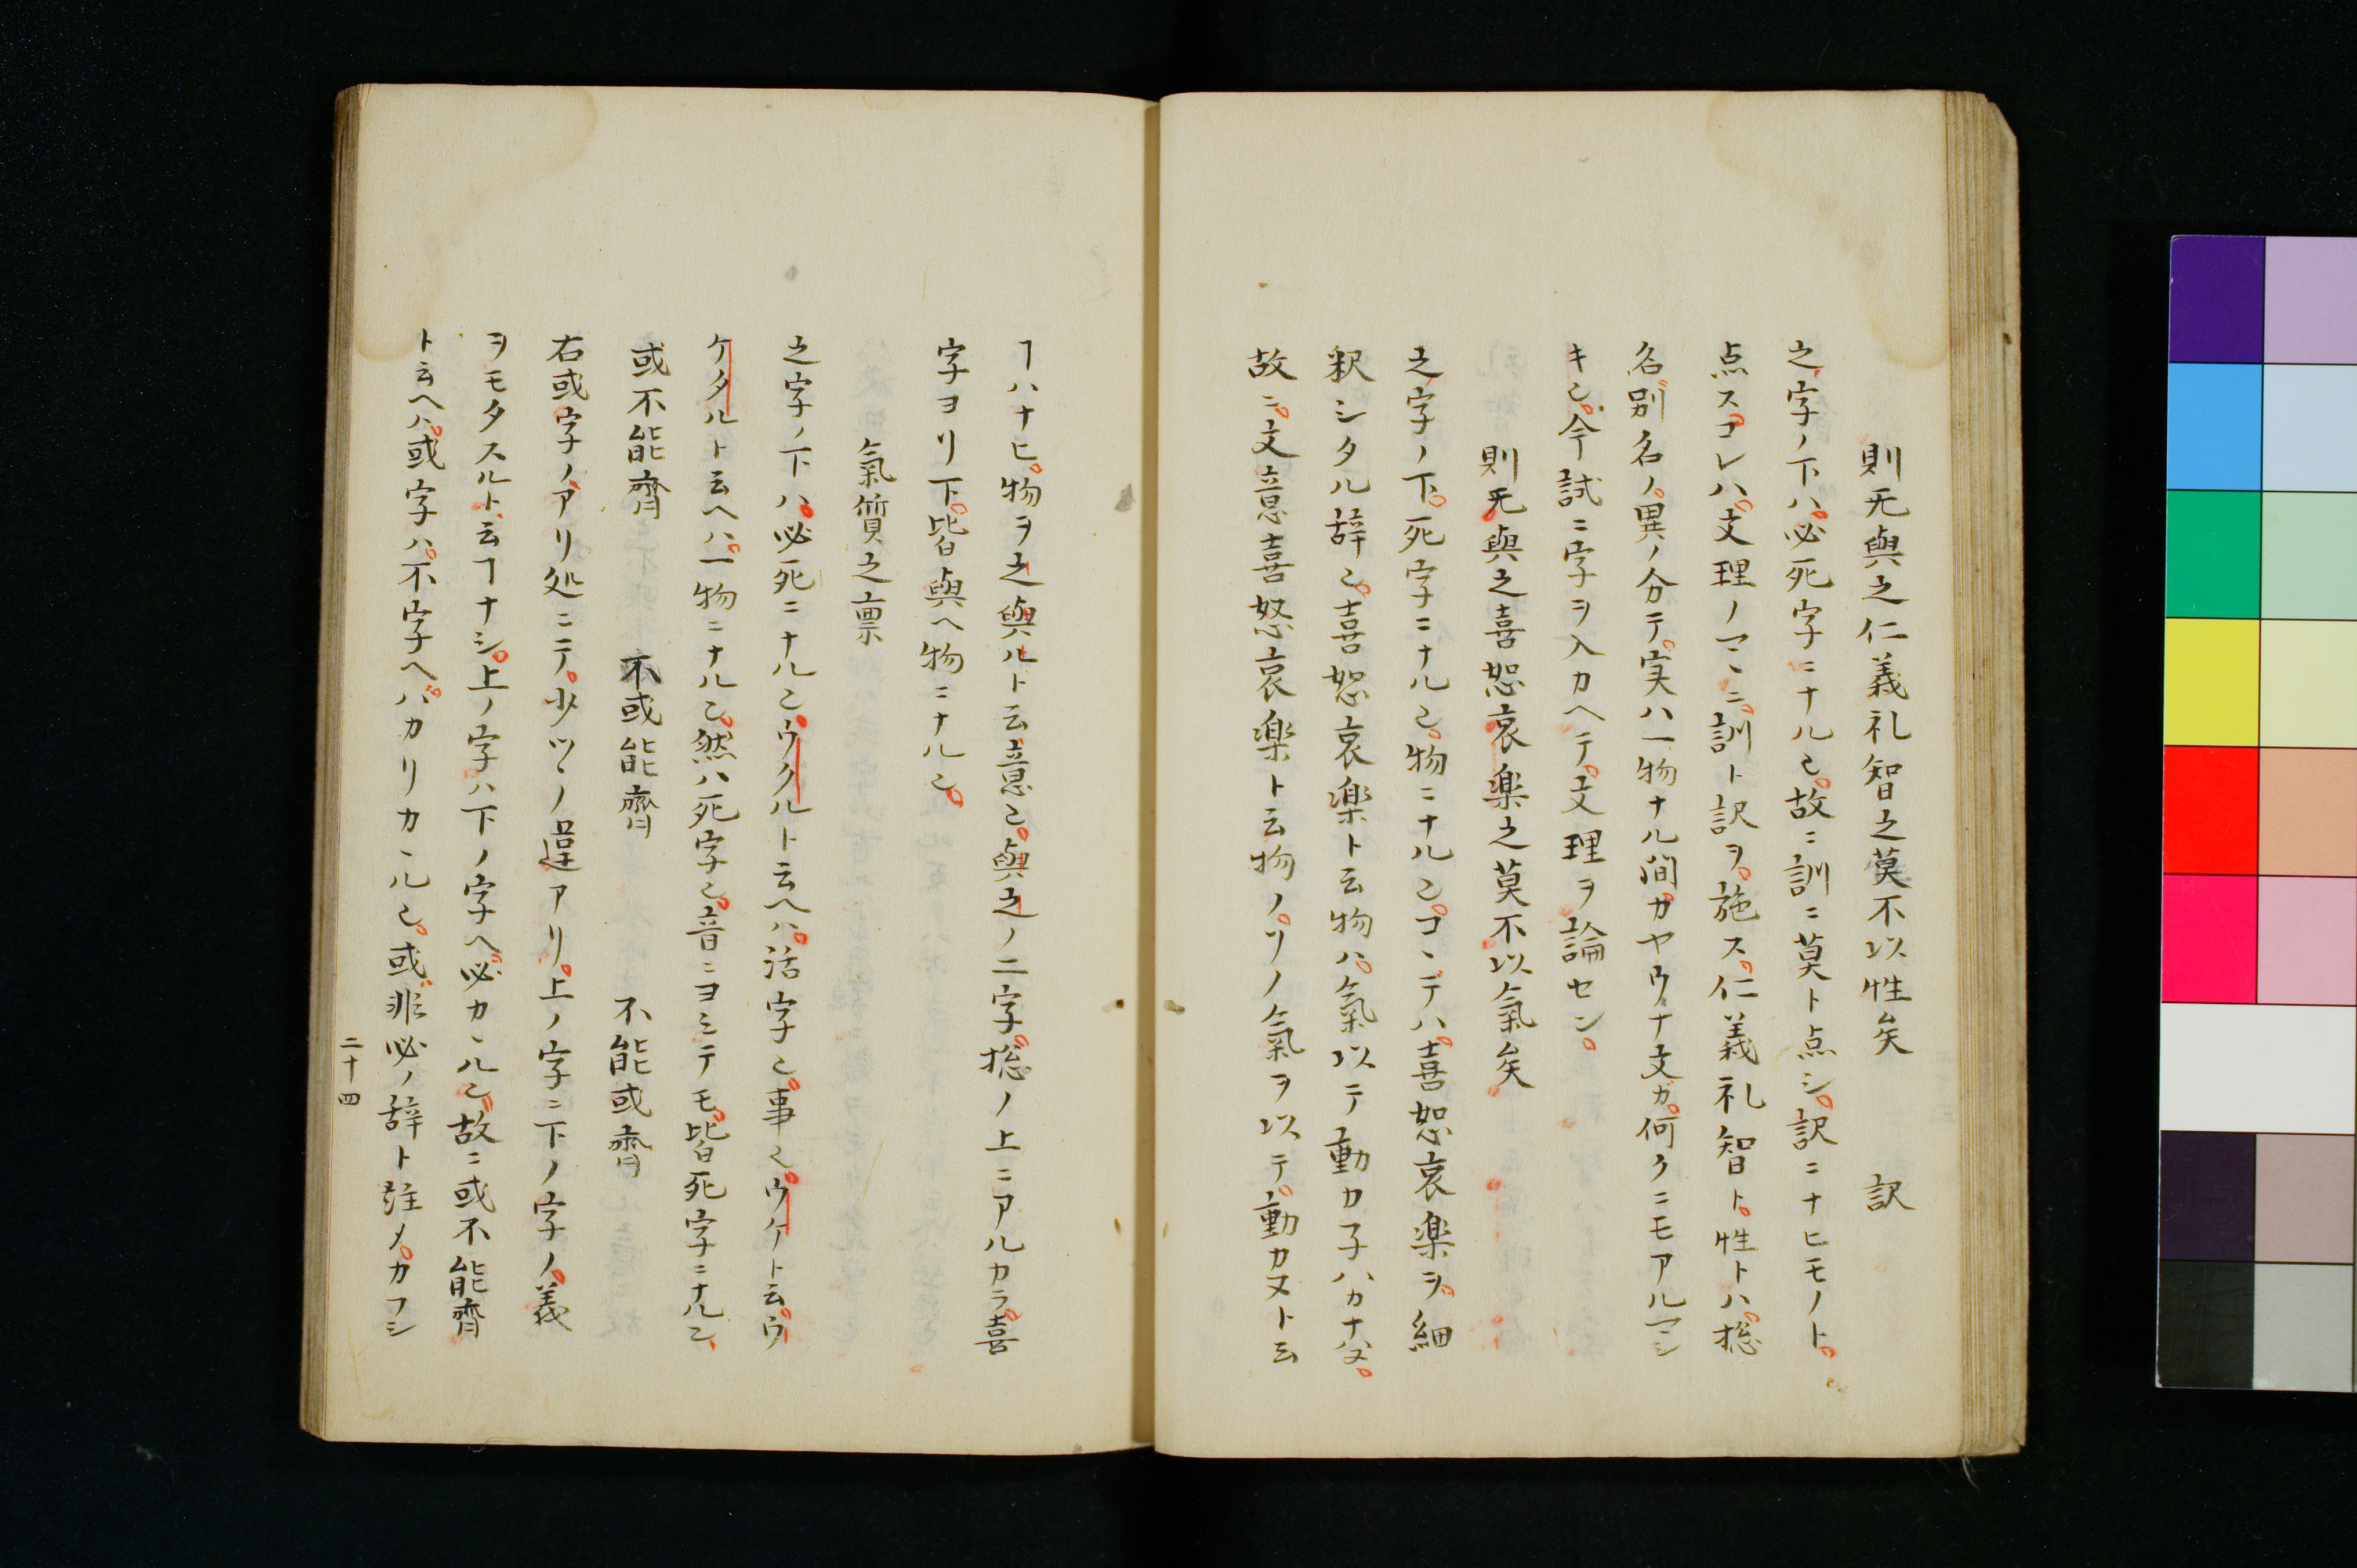 則无與之仁義礼智之莫不以性矣　訳
之字ノ下ハ必死字ニナル𪜈故ニ訓ニ莫ト点シ訳ニナヒモノト
点スコレハ文理ノマヽニ訓ト訳ヲ施ス仁義礼智ト性トハ総
名別名ノ異ノ分テ実ハ一物ナル間カヤウナ文ガ何クニモアルマシ
キ也今試ニ字ヲ入カヘテ文理ヲ論セン
則无與之喜怒哀楽之莫不以氣矣
之字ノ下死字ニナル也物ニナル也コヽデハ喜怒哀楽ヲ細
釈シタル辞也喜怒哀楽ト云物ハ氣以テ動カ子ハカナハヌ
故ニ文意喜怒哀楽ト云物ノソノ氣ヲ以テ動カヌト云
ヿハナヒ物ヲ之與ルト云意也與之ノ二字総ノ上ニアルカラ喜
字ヨリ下皆與ヘ物ニナル也
氣質之禀
之字ノ下ハ必死ニナル也ウクルト云ヘハ活字也事也ウケト云ウ
ケタルト云ヘハ一物ニナル也然ハ死字也音ニヨミテモ皆死字ニナル也
或不能齊　不或能齊　不能或齊
右或字ノアリ処ニテ少ツヽノ違アリ上ノ字ニ下ノ字ノ義
ヲモタスルト云ヿナシ上ノ字ハ下ノ字ヘ必カヽル也故ニ或不能齊
ト云ヘハ或字ハ不字ヘバカリカヽル也或非必ノ辞ト註メカフシ
二十四